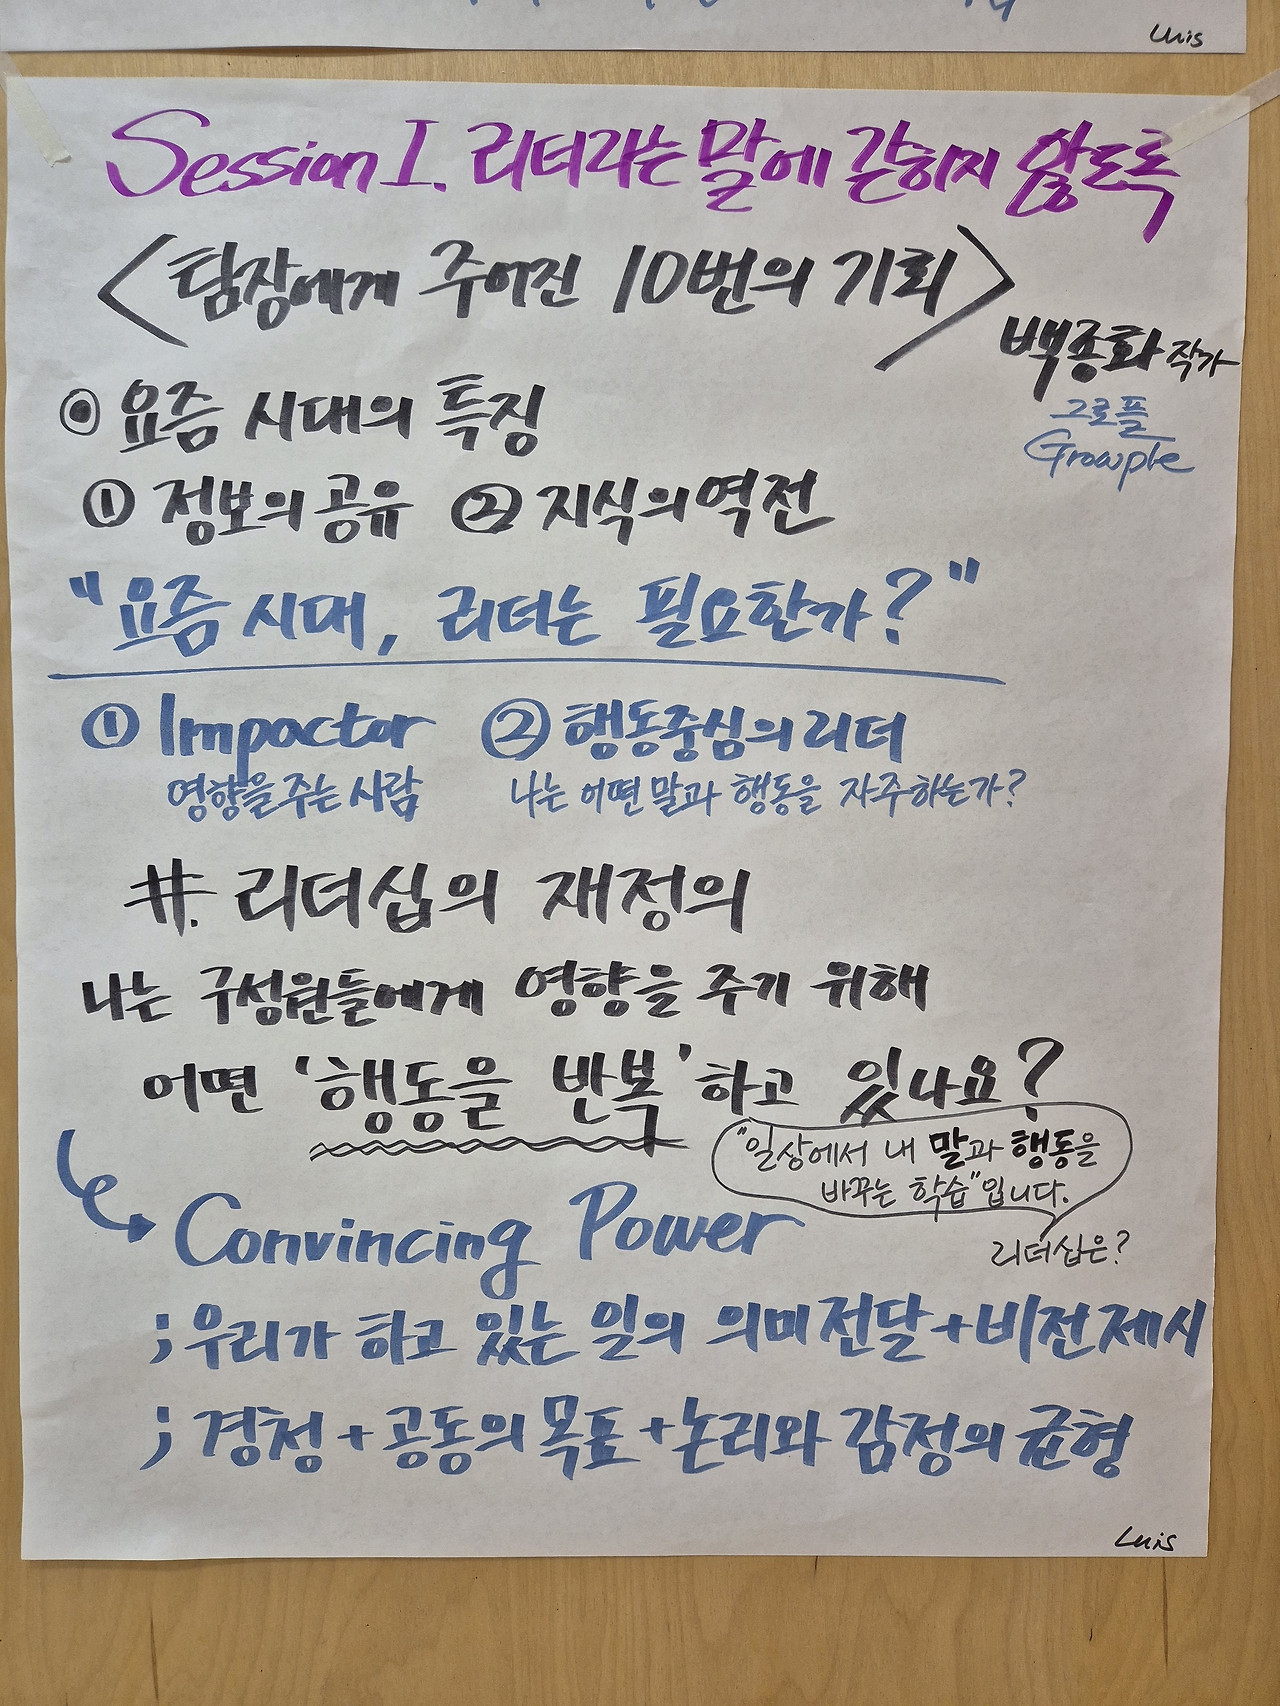 Luis
Session I. 리더라는 말에 갇히지 않도록
<팀장에게 주어진 10번의 기회>
백종화 작가
그로플
Growple
⊙ 요즘 시대의 특징
① 정보의 공유 ② 지식의 역전
"요즘 시대, 리더는 필요한가?"
① Impactor ② 행동중심의 리더
영향을 주는 사람 나는 어떤 말과 행동을 자주하는가?
#. 리더십의 재정의
나는 구성원들에게 영향을 주기 위해
어떤 '행동을 반복'하고 있나요?
"일상에서 내 말과 행동을
바꾸는 학습"입니다.
리더십은?
Convincing Power
; 우리가 하고 있는 일의 의미전달 + 비전제시
; 경청 + 공동의 목표 + 논리와 감정의 균형
Luis